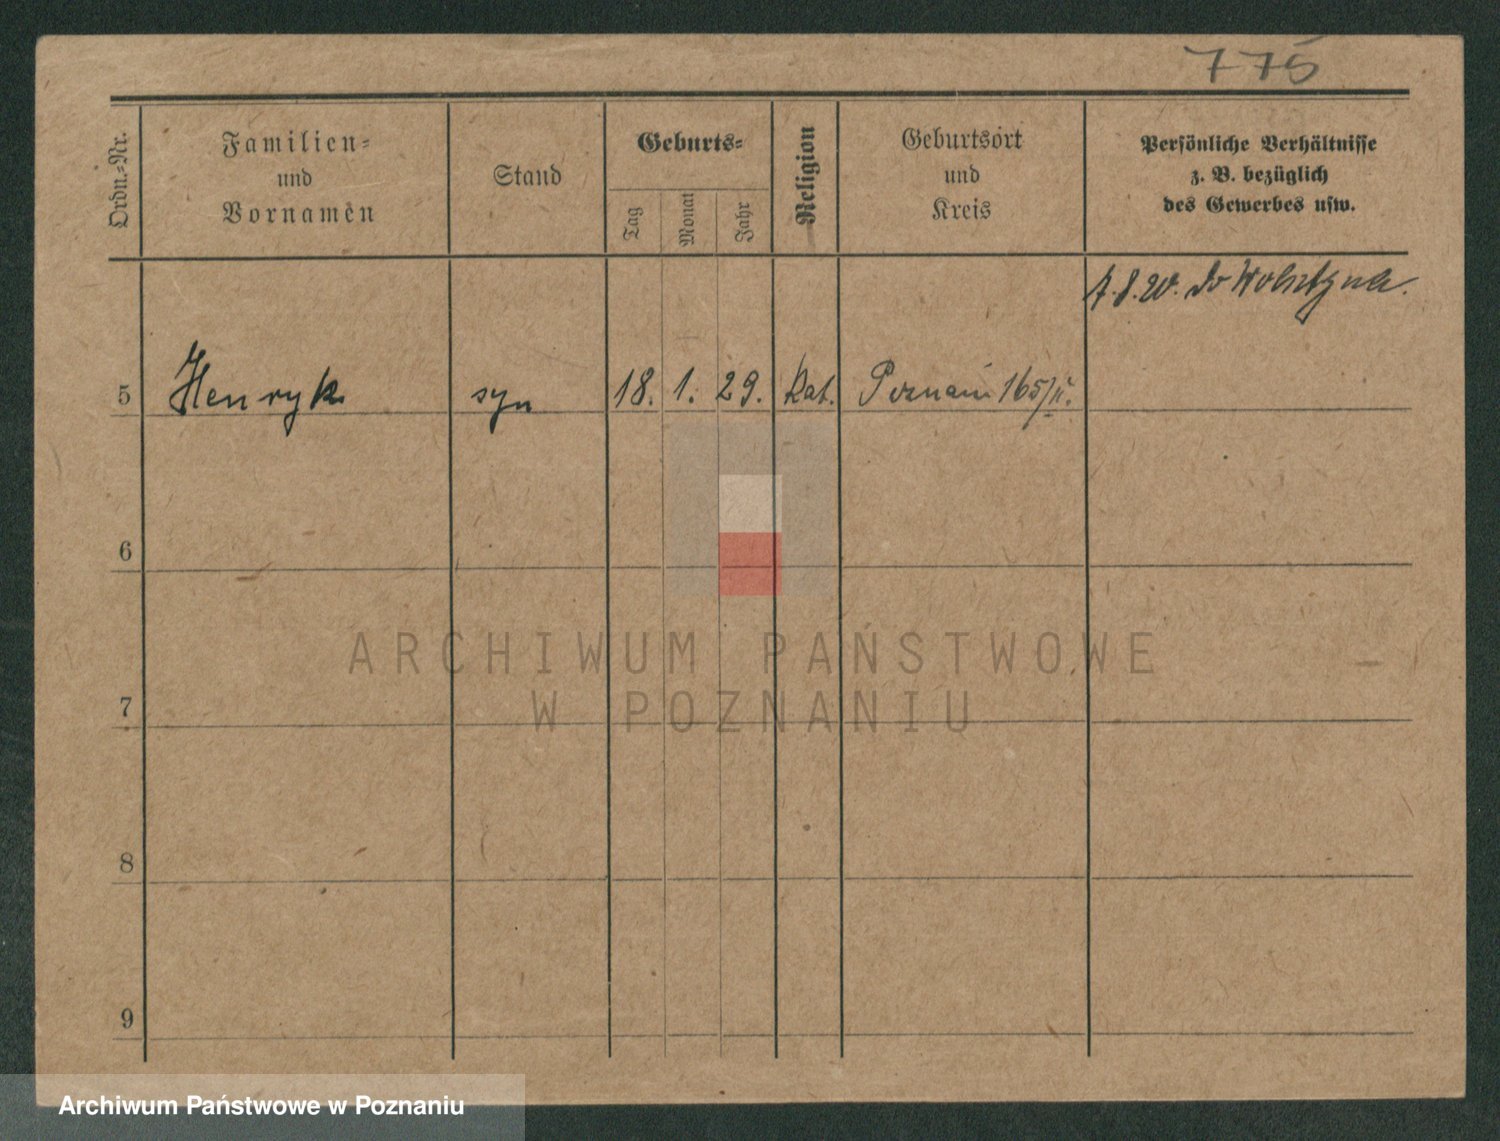 775
Ordn.-Nr.
Familien-
und
Vornamen
Stand
Geburts-
Tag
Monat
Jahr
Religion
Geburtsort
und
Kreis
Persönliche Verhältnisse
z. B. bezüglich
des Gewerbes usw.
do
5 Henryk syn 18. 1. 29. Kat. Poznań 165/II.
6
ARCHIWUM PAŃSTWOWE
W POZNANIU
7
8
9
Archiwum Państwowe w Poznaniu